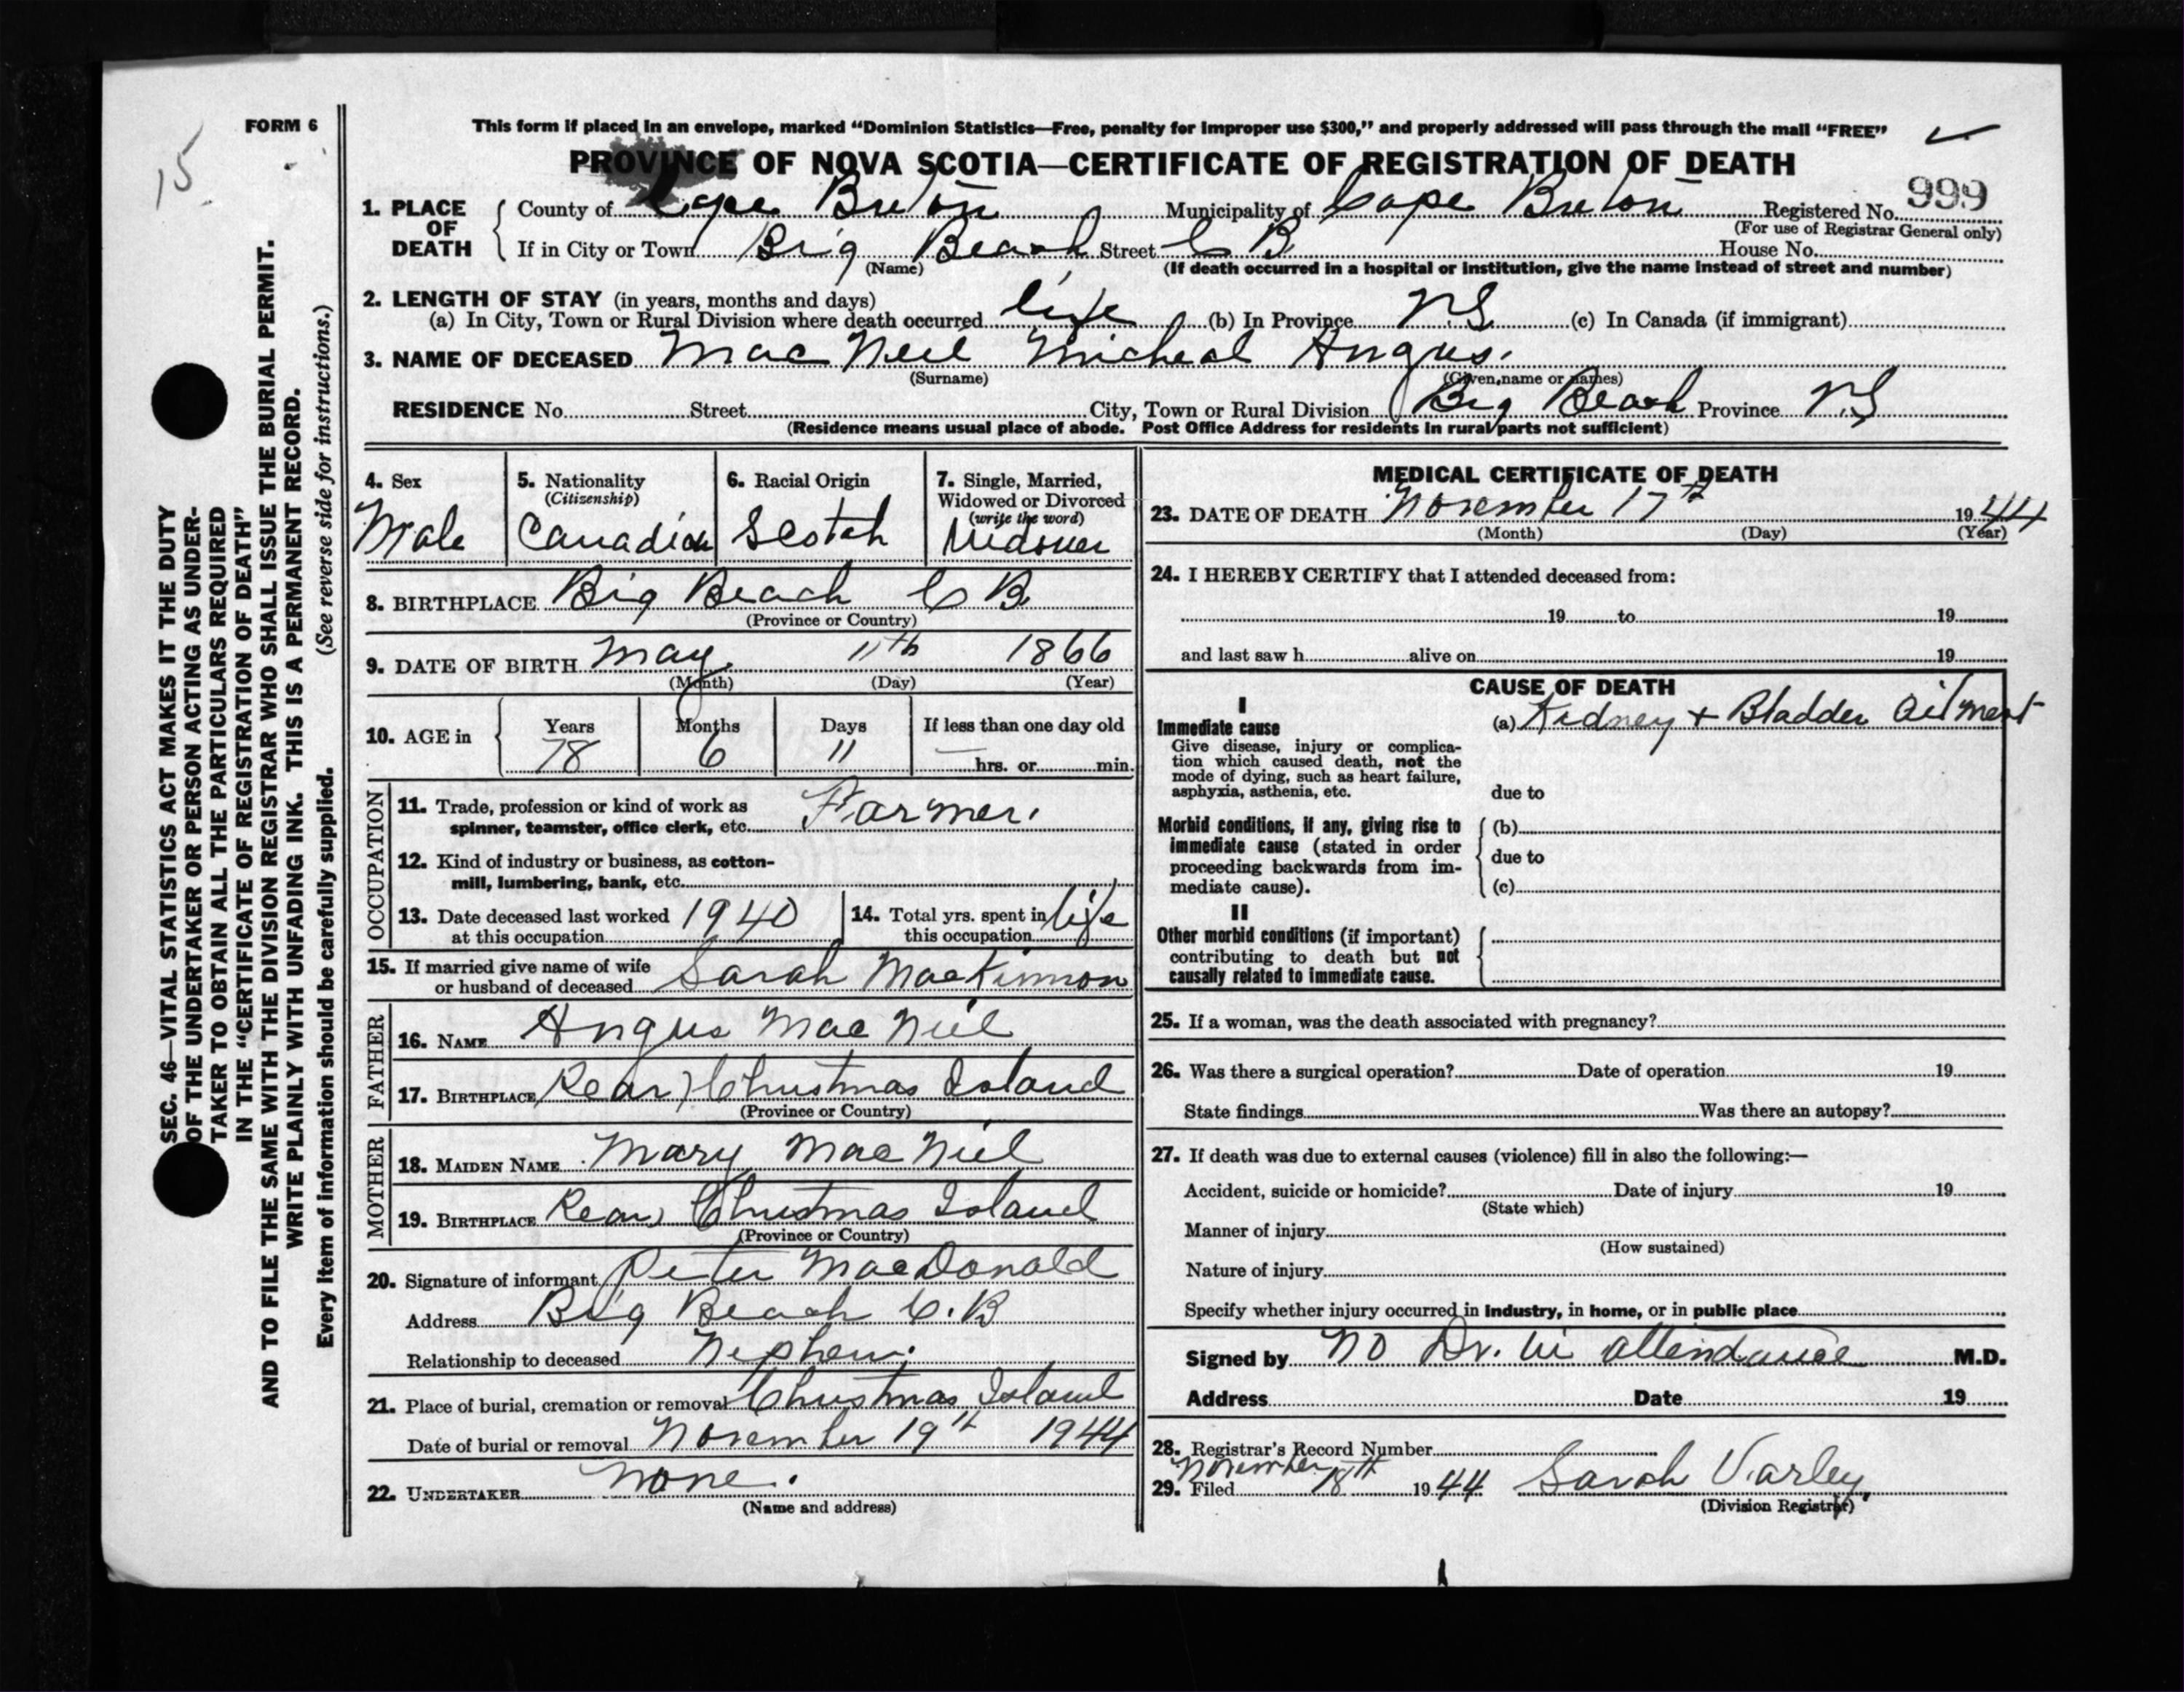 15
FORM 6
This form if placed in an envelope, marked “Dominion Statistics—Free, penalty for improper use $300,” and properly addressed will pass through the mail “FREE”
PROVINCE OF NOVA SCOTIA—CERTIFICATE OF REGISTRATION OF DEATH
999
1. PLACE OF DEATH
County of Cape Breton Municipality of Cape Breton Registered No.
(For use of Registrar General only)
If in City or Town Big Beach Street C B House No.
(Name) (If death occurred in a hospital or institution, give the name instead of street and number)
2. LENGTH OF STAY (in years, months and days)
(a) In City, Town or Rural Division where death occurred life (b) In Province N.S. (c) In Canada (if immigrant)
3. NAME OF DECEASED Mac Neil Micheal Angus.
(Surname) (Given name or names)
RESIDENCE No. Street City, Town or Rural Division Big Beach Province N.S
(Residence means usual place of abode. Post Office Address for residents in rural parts not sufficient)
4. Sex
Male
5. Nationality
(Citizenship)
Canadian
6. Racial Origin
Scotch
7. Single, Married,
Widowed or Divorced
(write the word)
Widower
8. BIRTHPLACE Big Beach C B.
(Province or Country)
9. DATE OF BIRTH May 11th 1866
(Month) (Day) (Year)
10. AGE in
Years Months Days If less than one day old
78 6 11 — hrs. or min.
OCCUPATION
11. Trade, profession or kind of work as
spinner, teamster, office clerk, etc. Farmer.
12. Kind of industry or business, as cotton-
mill, lumbering, bank, etc.
13. Date deceased last worked
at this occupation 1940
14. Total yrs. spent in
this occupation life
15. If married give name of wife
or husband of deceased Sarah MacKinnon
FATHER
16. NAME Angus Mac Niel
17. BIRTHPLACE Rear, Christmas Island
(Province or Country)
MOTHER
18. MAIDEN NAME Mary Mac Niel
19. BIRTHPLACE Rear, Christmas Island
(Province or Country)
20. Signature of informant Peter MacDonald
Address Big Beach C.B
Relationship to deceased Nephew.
21. Place of burial, cremation or removal Christmas Island
Date of burial or removal November 19th 1944
22. UNDERTAKER None.
(Name and address)
MEDICAL CERTIFICATE OF DEATH
23. DATE OF DEATH November 17th 1944
(Month) (Day) (Year)
24. I HEREBY CERTIFY that I attended deceased from:
19 to 19
and last saw h alive on 19
CAUSE OF DEATH
I
Immediate cause
Give disease, injury or complica-
tion which caused death, not the
mode of dying, such as heart failure,
asphyxia, asthenia, etc.
(a) Kidney + Bladder ailment
due to
Morbid conditions, if any, giving rise to
immediate cause (stated in order
proceeding backwards from im-
mediate cause).
(b)
due to
(c)
II
Other morbid conditions (if important)
contributing to death but not
causally related to immediate cause.
25. If a woman, was the death associated with pregnancy?
26. Was there a surgical operation? Date of operation 19
State findings Was there an autopsy?
27. If death was due to external causes (violence) fill in also the following:—
Accident, suicide or homicide? Date of injury 19
(State which)
Manner of injury
(How sustained)
Nature of injury
Specify whether injury occurred in industry, in home, or in public place
Signed by No Dr. in attendance M.D.
Address Date 19
28. Registrar's Record Number
29. Filed November 18th 1944 Sarah Varley,
(Division Registrar)
SEC. 46—VITAL STATISTICS ACT MAKES IT THE DUTY
OF THE UNDERTAKER OR PERSON ACTING AS UNDER-
TAKER TO OBTAIN ALL THE PARTICULARS REQUIRED
IN THE “CERTIFICATE OF REGISTRATION OF DEATH”
AND TO FILE THE SAME WITH THE DIVISION REGISTRAR WHO SHALL ISSUE THE BURIAL PERMIT.
WRITE PLAINLY WITH UNFADING INK. THIS IS A PERMANENT RECORD.
Every item of information should be carefully supplied. (See reverse side for instructions.)